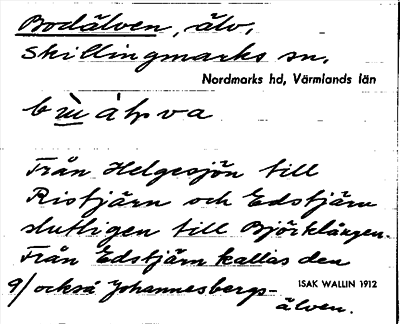 Bodälven, älv,
Skillingmarks sn,
Nordmarks hd, Värmlands län
Från Helgesjön till
Ristjärn och Edstjärn
slutligen till Björklången.
Från Edstjärn kallas den
9/ också Johannesbergs-
ISAK WALLIN 1912
älven.